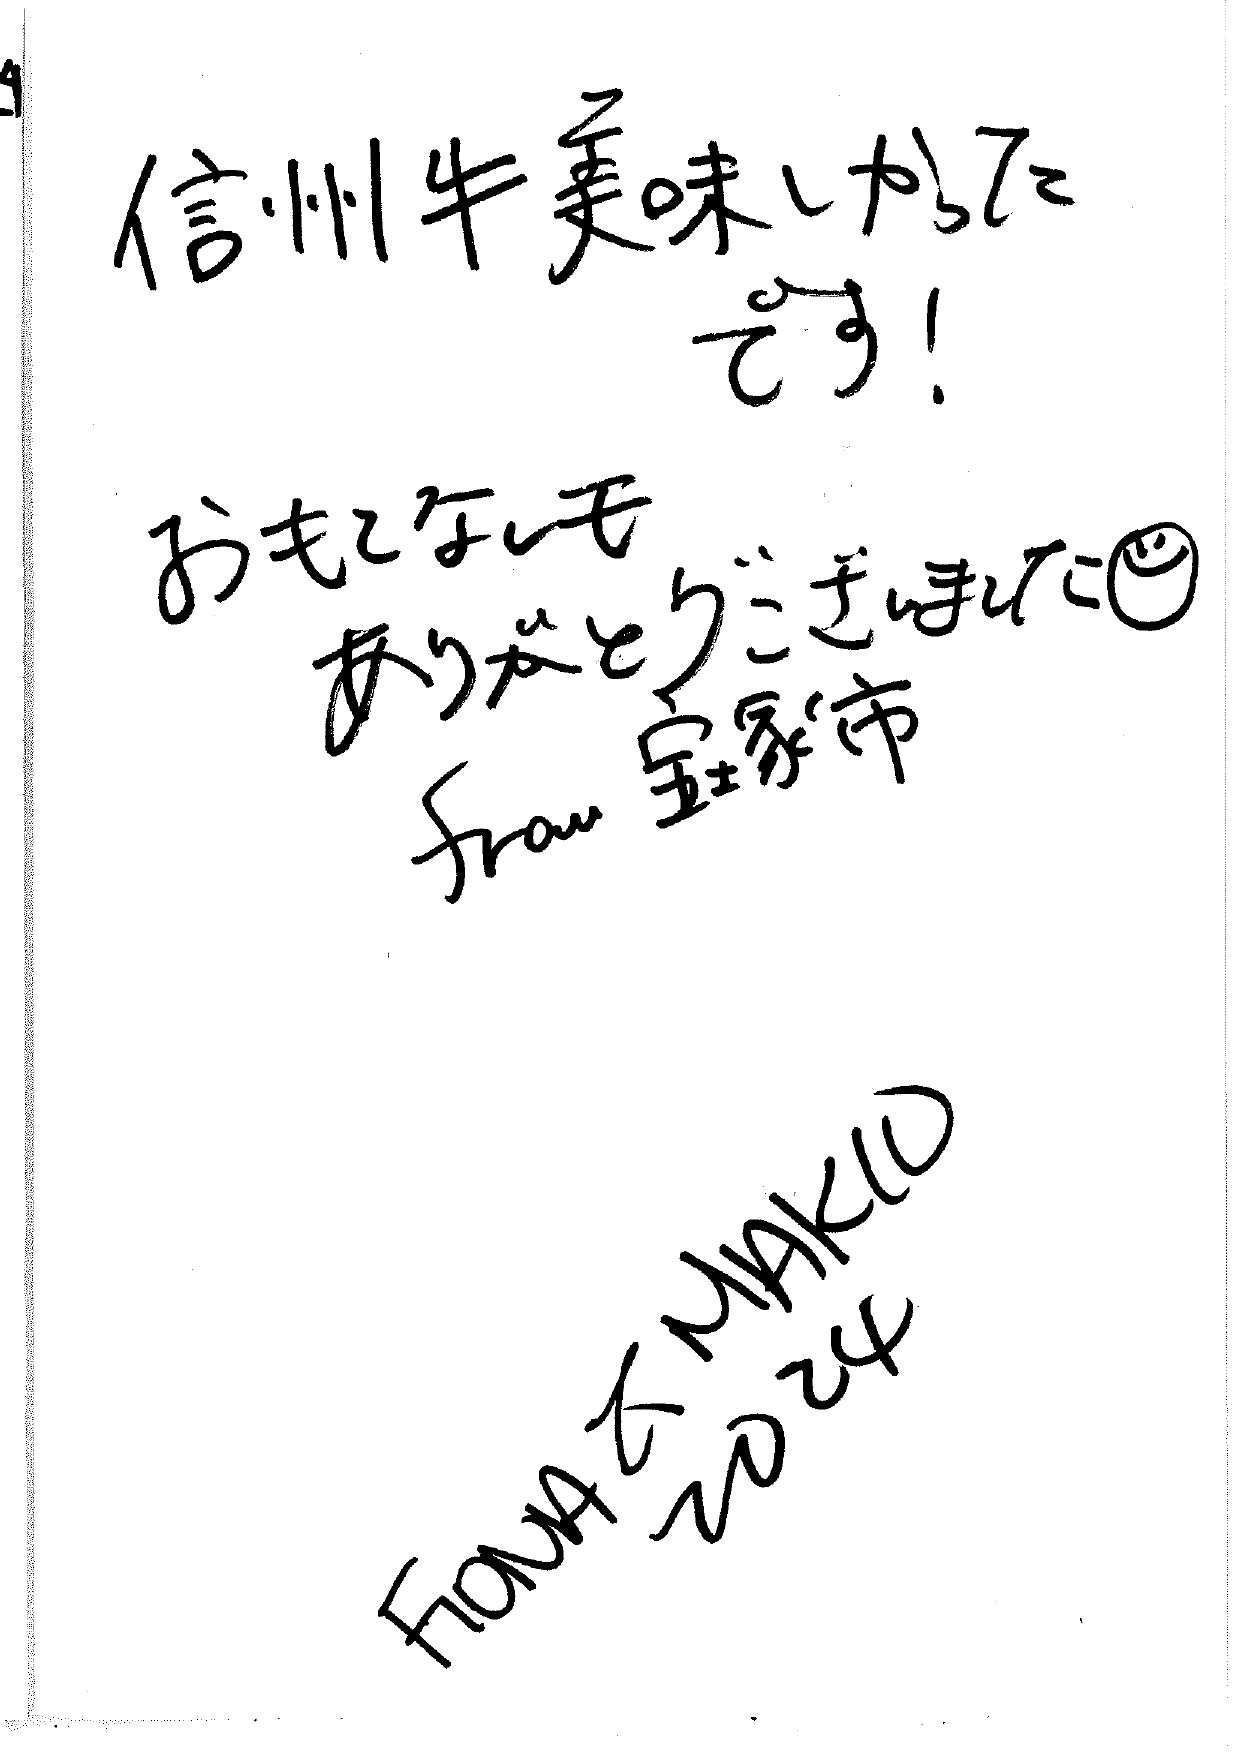 信州牛美味しかった
です!
おもてなしも
ありがとうございました
from 宝塚市
FIONA & MAKIO
2024